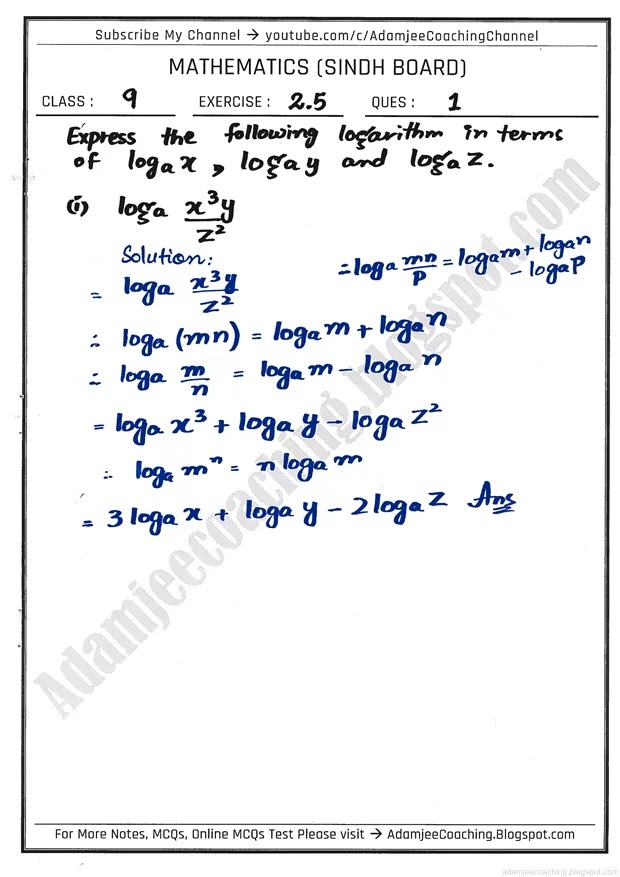 Subscribe My Channel → youtube.com/c/AdamjeeCoachingChannel
MATHEMATICS (SINDH BOARD)
CLASS : 9 EXERCISE : 2.5 QUES : 1
Express the following logarithm in terms
of logₐx , logₐy and logₐz.
(i) logₐ x³y/z²
Solution:
= logₐ x³y/z²
= logₐ mn/p = logₐm + logₐn
- logₐP
∴ logₐ (mn) = logₐm + logₐn
∴ logₐ m/n = logₐm - logₐn
= logₐ x³ + logₐ y - logₐ z²
∴ logₐ mⁿ = n logₐ m
= 3 logₐ x + logₐ y - 2 logₐ z Ans
Adamjeecoaching.blogspot.com
For More Notes, MCQs, Online MCQs Test Please visit → AdamjeeCoaching.Blogspot.com
adamjeecoaching.blogspot.com